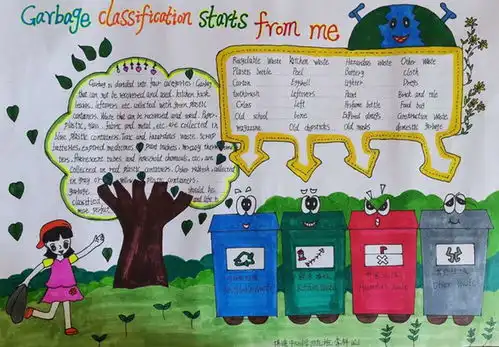 Garbage classification starts from me
Garbage is divided into four categories: Garbage
that can not be recovered and used, kitchen
leaves, leftovers, etc. are collected with green plastic
containers. Waste that can be recovered and used. Paper,
plastic, glass, fabric and metal, etc. are collected in
blue plastic containers. Toxic and hazardous waste
batteries, expired medicines, paint buckets,
fluorescent tubes, and household chemicals, etc. are
collected in red plastic containers. Other
in grey plastic containers.
garbage should be
classified and life is
more perfect.
Recyclable Waste Kitchen Waste Hazardous Waste Other Waste
Plastic bottle Peel Battery cloth
Carton Eggshell Lighter Dregs
toothbrush leftovers Paint Brick and tile
Coins left Perfume bottle Food bag
Old school bone Expired Construction Waste
magazine Old chopsticks Old masks domestic garbage
可回收垃圾
Recyclable Waste
厨余垃圾
Kitchen Waste
有害垃圾
Hazardous Waste
其他垃圾
Other Waste